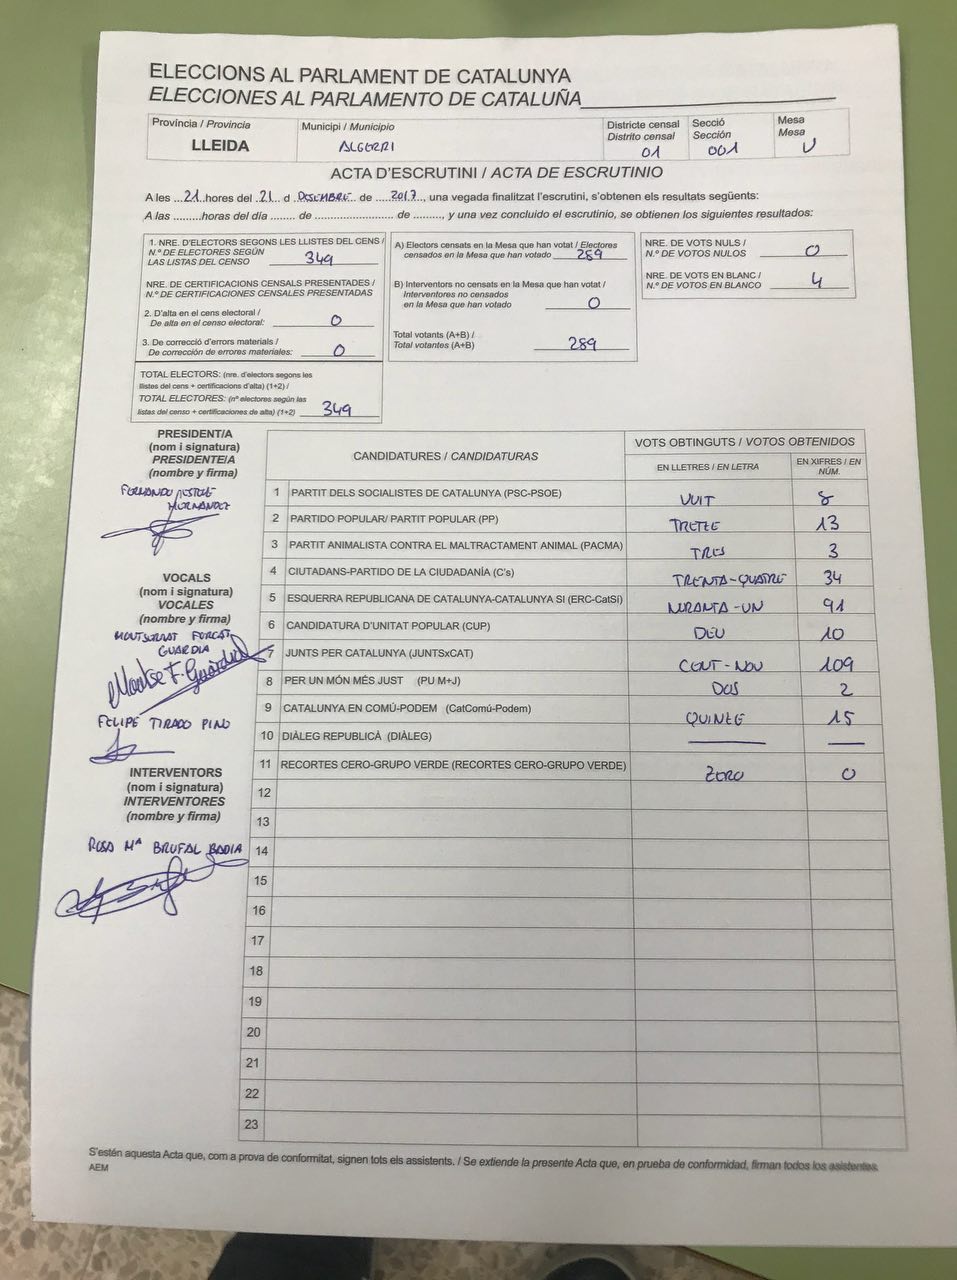 ELECCIONS AL PARLAMENT DE CATALUNYA
ELECCIONES AL PARLAMENTO DE CATALUÑA
Província / Provincia
LLEIDA
Municipi / Municipio
ALGERRI
Districte censal
Distrito censal
01
Secció
Sección
001
Mesa
Mesa
U
ACTA D'ESCRUTINI / ACTA DE ESCRUTINIO
A les ...21...hores del 21.. d DESEMBRE de .....2017..., una vegada finalitzat l'escrutini, s'obtenen els resultats següents:
A las .........horas del día ........ de .......................... de ........., y una vez concluido el escrutinio, se obtienen los siguientes resultados:
1. NRE. D'ELECTORS SEGONS LES LLISTES DEL CENS /
N.º DE ELECTORES SEGÚN
LAS LISTAS DEL CENSO 349
NRE. DE CERTIFICACIONS CENSALS PRESENTADES /
N.º DE CERTIFICACIONES CENSALES PRESENTADAS
2. D'alta en el cens electoral /
De alta en el censo electoral: 0
3. De correcció d'errors materials /
De corrección de errores materiales: 0
TOTAL ELECTORS: (nre. d'electors segons les
llistes del cens + certificacions d'alta) (1+2) /
TOTAL ELECTORES: (nº electores según las
listas del censo + certificaciones de alta) (1+2) 349
A) Electors censats en la Mesa que han votat / Electores
censados en la Mesa que han votado 289
B) Interventors no censats en la Mesa que han votat /
Interventores no censados
en la Mesa que han votado 0
Total votants (A+B) /
Total votantes (A+B) 289
NRE. DE VOTS NULS /
N.º DE VOTOS NULOS 0
NRE. DE VOTS EN BLANC /
N.º DE VOTOS EN BLANCO 4
PRESIDENT/A
(nom i signatura)
PRESIDENTE/A
(nombre y firma)
FERNANDO
HERNANDEZ
VOCALS
(nom i signatura)
VOCALES
(nombre y firma)
MONTSERRAT FORCAT
GUARDIA
Montse F. Guàrdia
FELIPE TIRADO PINO
INTERVENTORS
(nom i signatura)
INTERVENTORES
(nombre y firma)
ROSA Mª BRUFAL BADIA
CANDIDATURES / CANDIDATURAS
VOTS OBTINGUTS / VOTOS OBTENIDOS
EN LLETRES / EN LETRA
EN XIFRES / EN
NÚM.
1 PARTIT DELS SOCIALISTES DE CATALUNYA (PSC-PSOE) VUIT 8
2 PARTIDO POPULAR/ PARTIT POPULAR (PP) TRETZE 13
3 PARTIT ANIMALISTA CONTRA EL MALTRACTAMENT ANIMAL (PACMA) TRES 3
4 CIUTADANS-PARTIDO DE LA CIUDADANÍA (C's) TRENTA-QUATRE 34
5 ESQUERRA REPUBLICANA DE CATALUNYA-CATALUNYA SÍ (ERC-CatSí) NORANTA-UN 91
6 CANDIDATURA D'UNITAT POPULAR (CUP) DEU 10
7 JUNTS PER CATALUNYA (JUNTSxCAT) CENT-NOU 109
8 PER UN MÓN MÉS JUST (PU M+J) DOS 2
9 CATALUNYA EN COMÚ-PODEM (CatComú-Podem) QUINZE 15
10 DIÀLEG REPUBLICÀ (DIÀLEG)
11 RECORTES CERO-GRUPO VERDE (RECORTES CERO-GRUPO VERDE) ZERO 0
12
13
14
15
16
17
18
19
20
21
22
23
S'estén aquesta Acta que, com a prova de conformitat, signen tots els assistents. / Se extiende la presente Acta que, en prueba de conformidad, firman todos los asistentes.
AEM